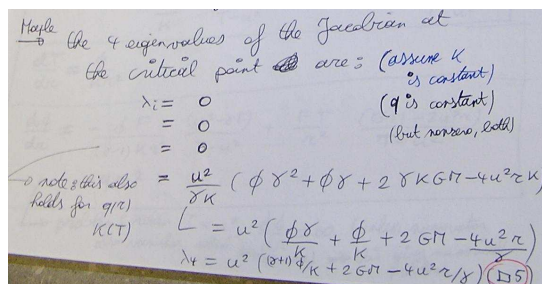 Maple
→ the 4 eigenvalues of the Jacobian at
the critical point are: (assume K
is constant)
λi = 0 (q is constant)
= 0 (but nonzero, both)
= 0
→ note: this also = u²/γK (ϕγ² + ϕγ + 2γKGM - 4u²rK)
holds for q(r)
K(T) = u² (ϕγ/K + ϕ/K + 2GM - 4u²r/γ)
λ4 = u² ((γ+1)ϕ/K + 2GM - 4u²r/γ) (□5)